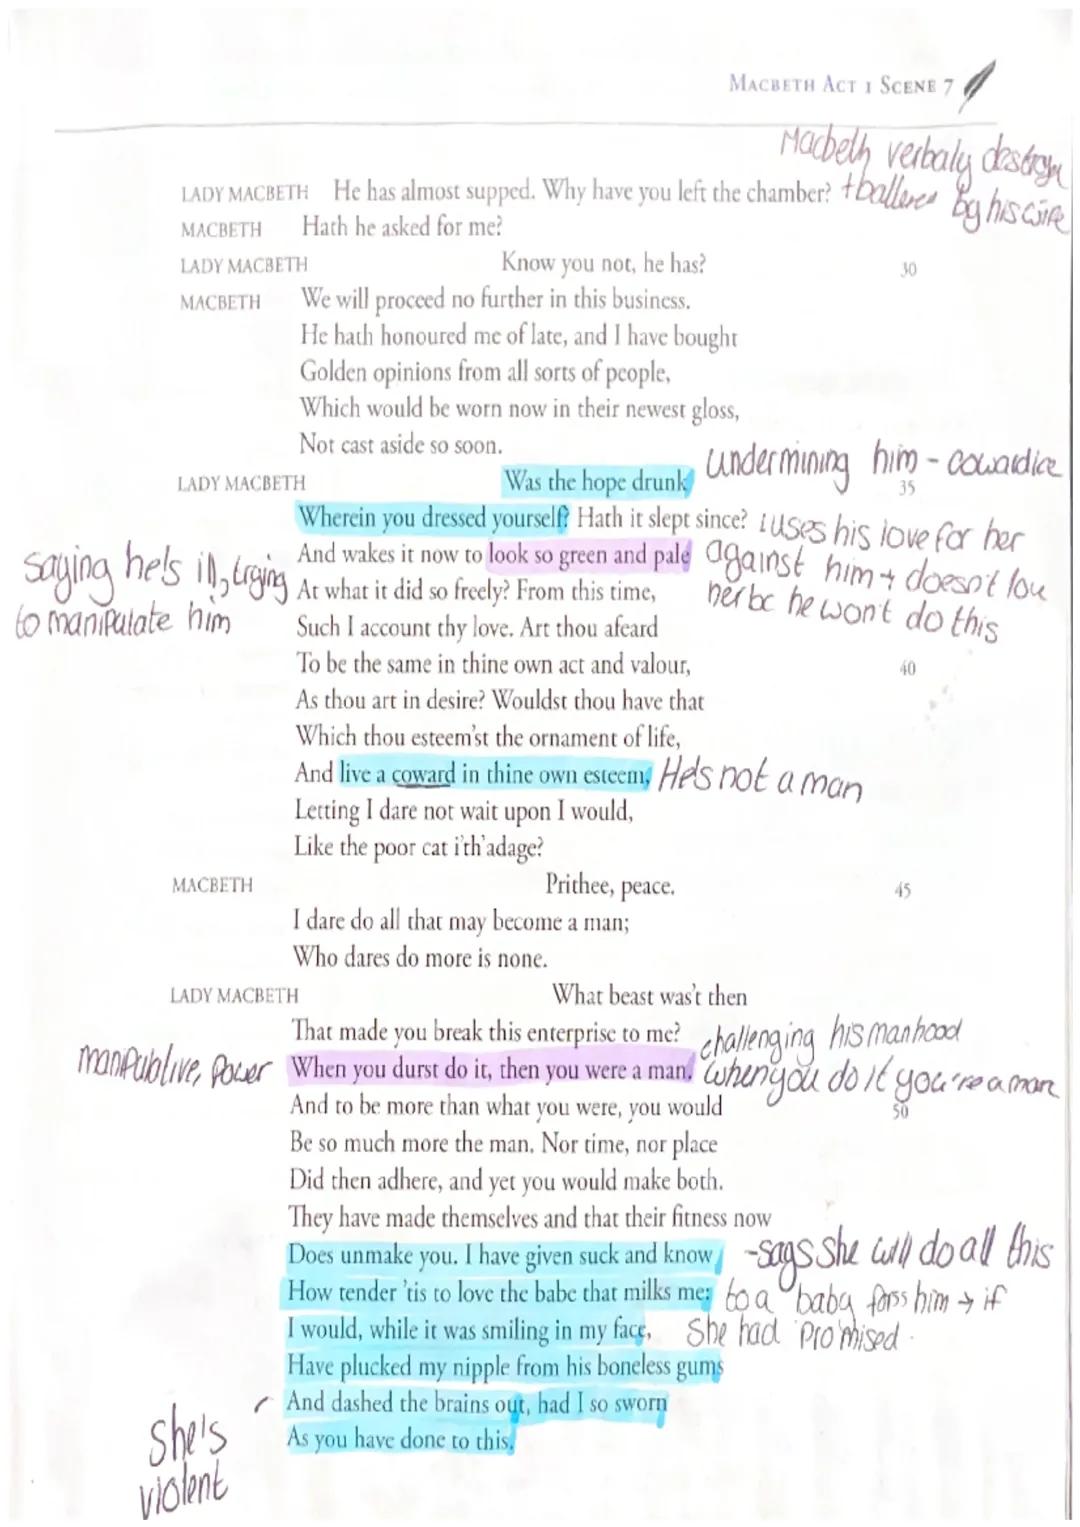 MACBETH ACT 1 SCENE 7
Macbeth verbaly destroy
LADY MACBETH He has almost supped. Why have you left the chamber? + by his wife
MACBETH Hath he asked for me?
LADY MACBETH Know you not, he has? 30
MACBETH We will proceed no further in this business.
He hath honoured me of late, and I have bought
Golden opinions from all sorts of people,
Which would be worn now in their newest gloss,
Not cast aside so soon.
undermining him - cowardice
LADY MACBETH Was the hope drunk 35
Wherein you dressed yourself? Hath it slept since? uses his love for her
And wakes it now to look so green and pale against him + doesn't lov
saying he's ill, trying At what it did so freely? From this time, her bc he won't do this
to manipulate him Such I account thy love. Art thou afeard
To be the same in thine own act and valour, 40
As thou art in desire? Wouldst thou have that
Which thou esteem'st the ornament of life,
And live a coward in thine own esteem, He's not a man
Letting I dare not wait upon I would,
Like the poor cat i'th'adage?
MACBETH Prithee, peace. 45
I dare do all that may become a man;
Who dares do more is none.
LADY MACBETH What beast was't then
That made you break this enterprise to me? challenging his manhood
manipulative, Power When you durst do it, then you were a man. when you do it you're a man
And to be more than what you were, you would 50
Be so much more the man. Nor time, nor place
Did then adhere, and yet you would make both.
They have made themselves and that their fitness now
Does unmake you. I have given suck and know -says she will do all this
How tender 'tis to love the babe that milks me: to a baby him → if
I would, while it was smiling in my face, she had promised.
Have plucked my nipple from his boneless gums
And dashed the brains out, had I so sworn
she's As you have done to this.
violent